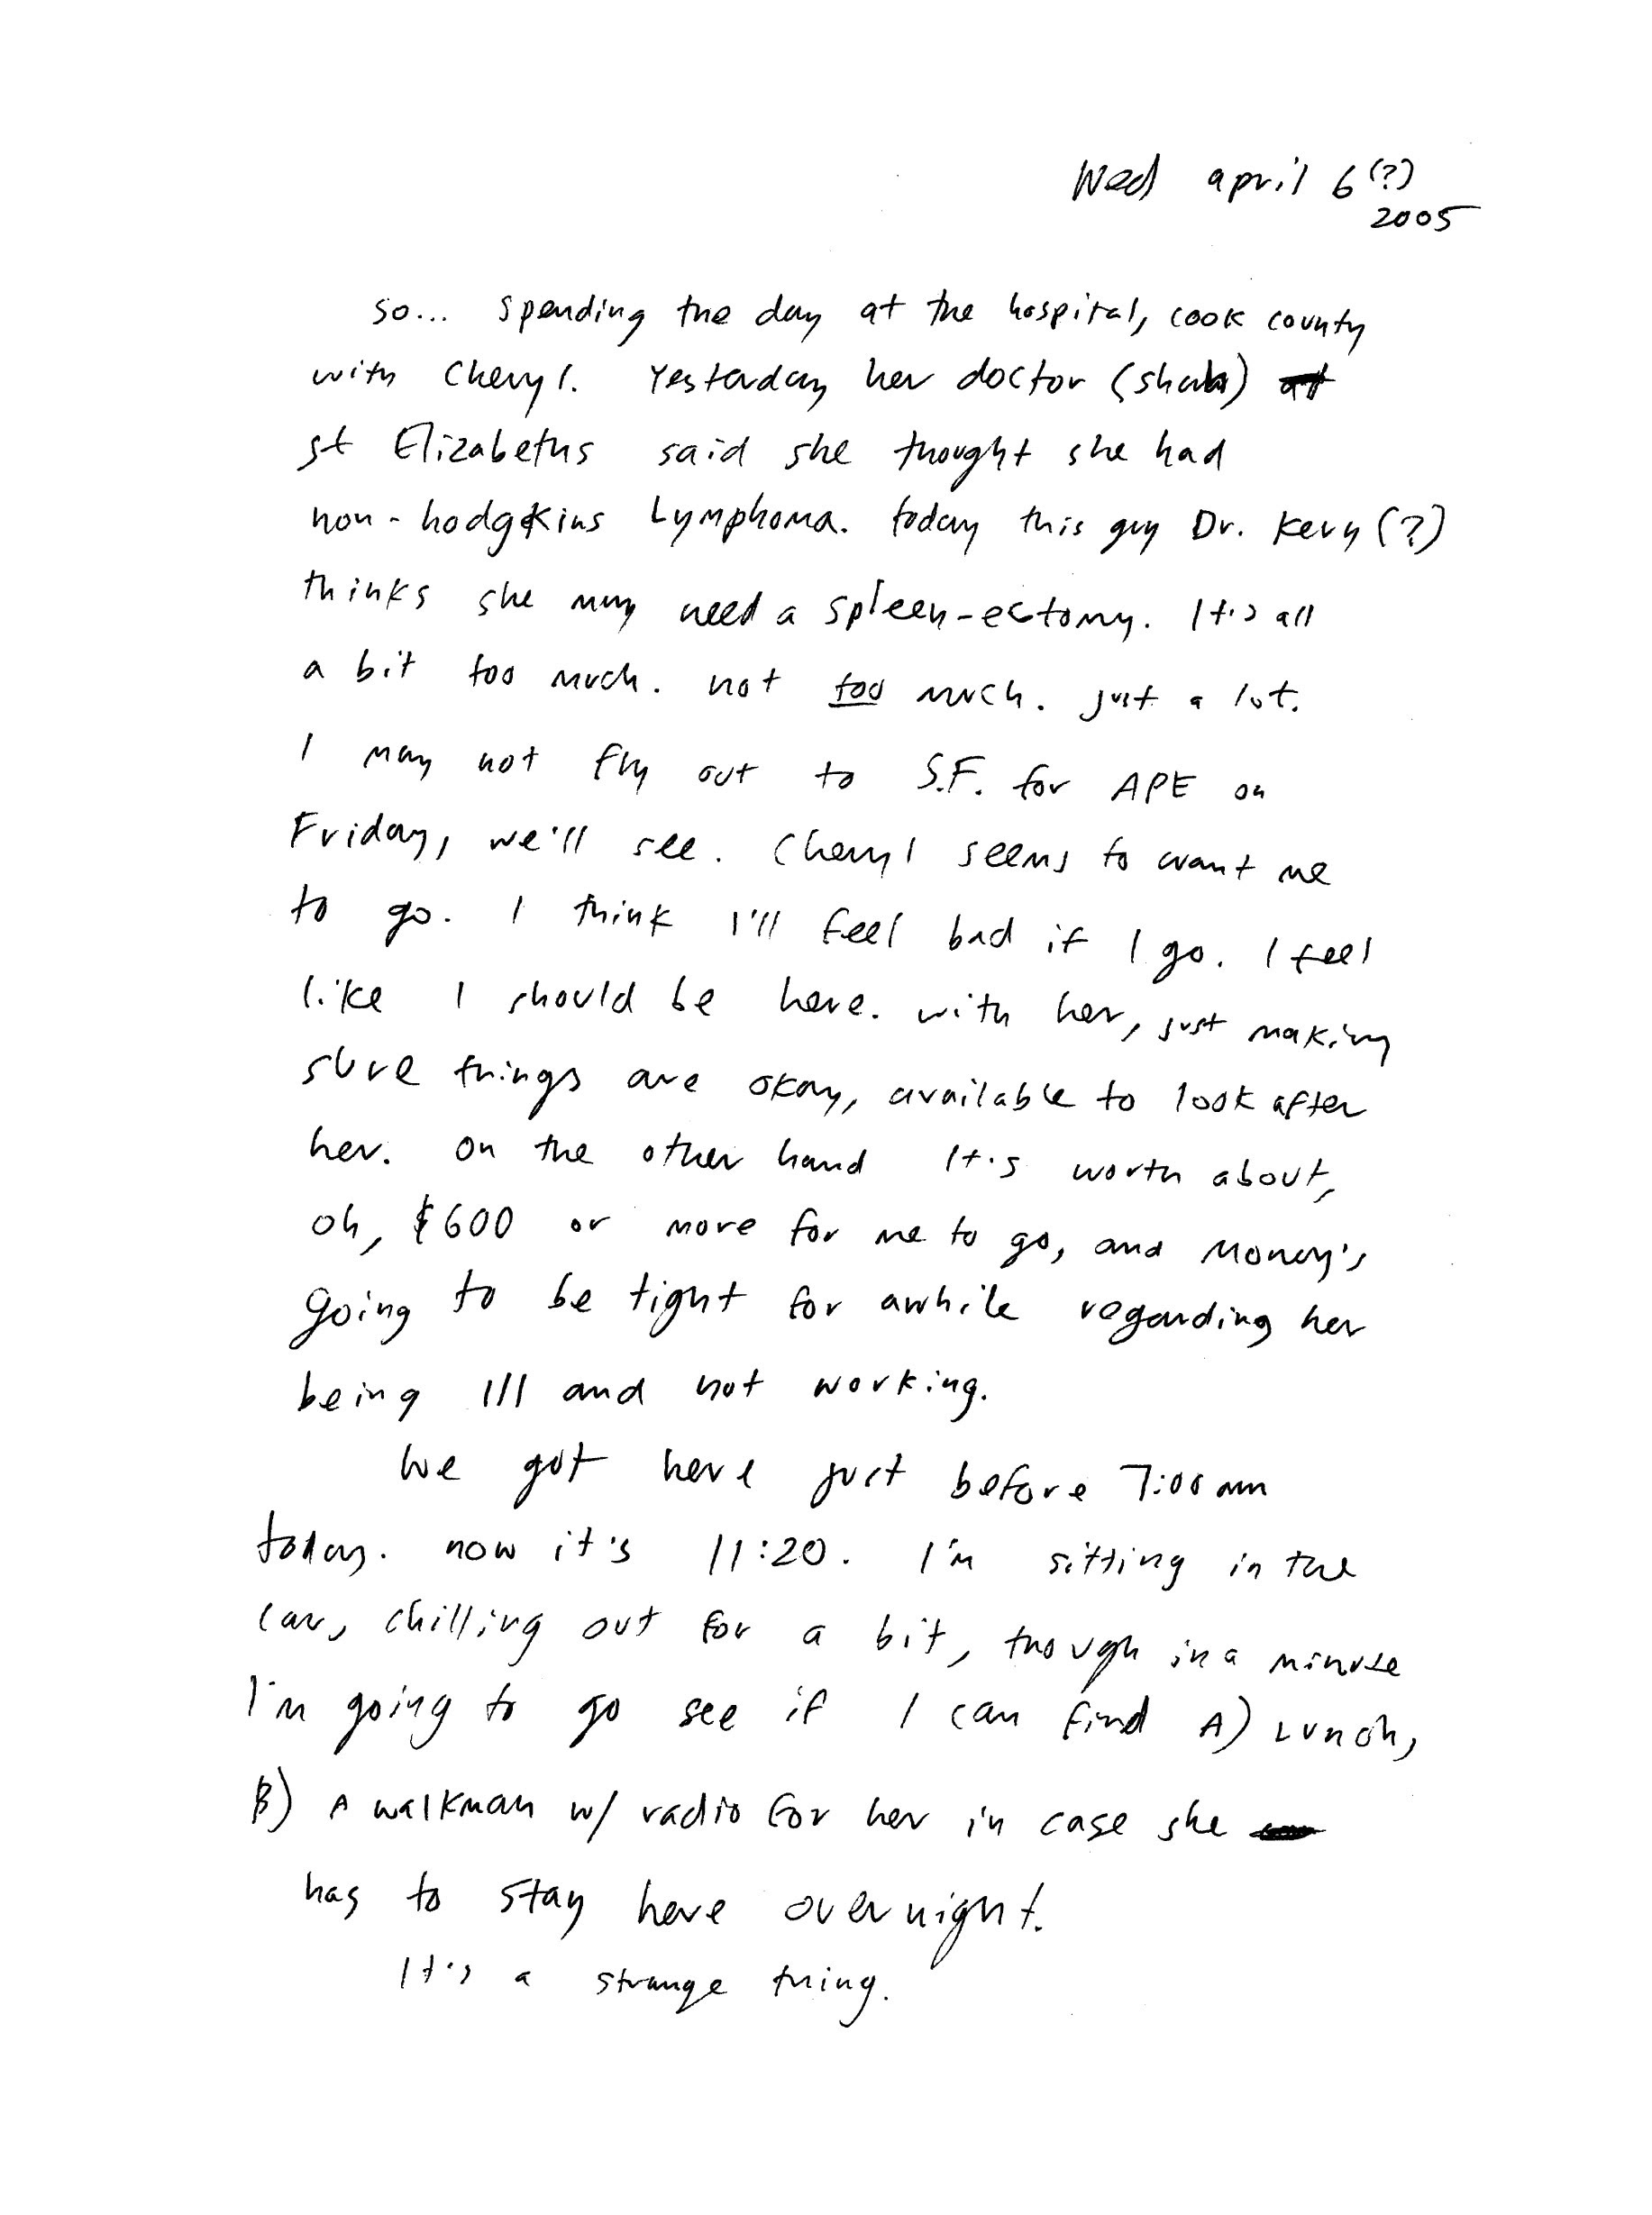 Wed april 6 (?)
2005
so... spending the day at the hospital, cook county
with Cheryl. Yesterday her doctor (shah) at
st Elizabeths said she thought she had
non-hodgkins Lymphoma. today this guy Dr. Kern (?)
thinks she may need a spleen-ectomy. It's all
a bit too much. not too much. just a lot.
I may not fly out to S.F. for APE on
Friday, we'll see. Cheryl seems to want me
to go. I think I'll feel bad if I go. I feel
like I should be here. with her, just making
sure things are okay, available to look after
her. on the other hand It's worth about,
oh, $600 or more for me to go, and money's
going to be tight for awhile regarding her
being Ill and not working.
We got here just before 7:00 am
today. now it's 11:20. I'm sitting in the
car, chilling out for a bit, though in a minute
I'm going to go see if I can find A) Lunch,
B) A walkman w/ radio for her in case she
has to stay here overnight.
It's a strange thing.